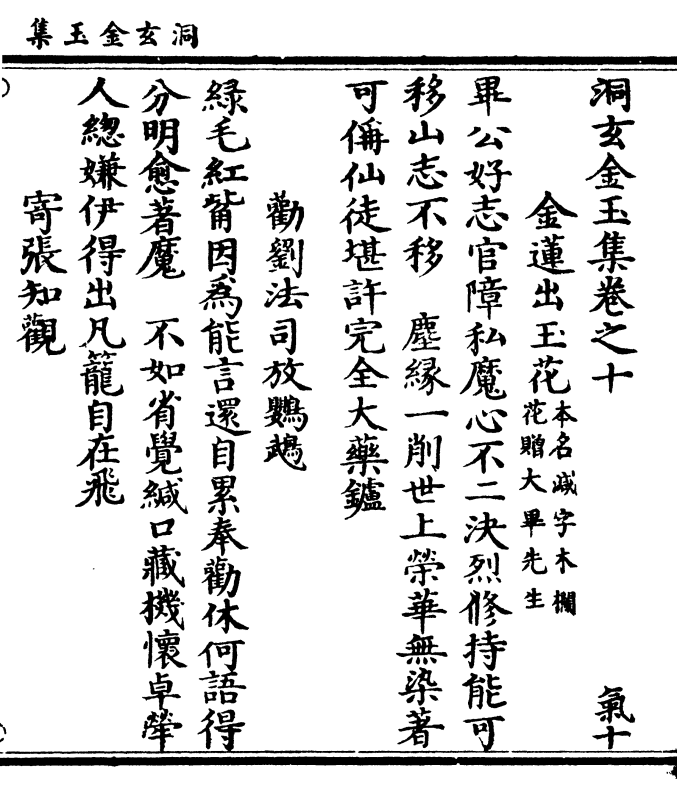 洞玄金玉集
洞玄金玉集卷之十
氣十
金蓮出玉花
本名減字木欄
花贈大畢先生
畢公好志官障私魔心不二決烈修持能可
移山志不移　塵緣一削世上榮華無染著
可偁仙徒堪許完全大藥鑪
勸劉法司放鸚鵡
綠毛紅觜因爲能言還自累奉勸休何語得
分明愈著魔　不如省覺緘口藏機懷卓犖
人總嫌伊得出凡籠自在飛
寄張知觀